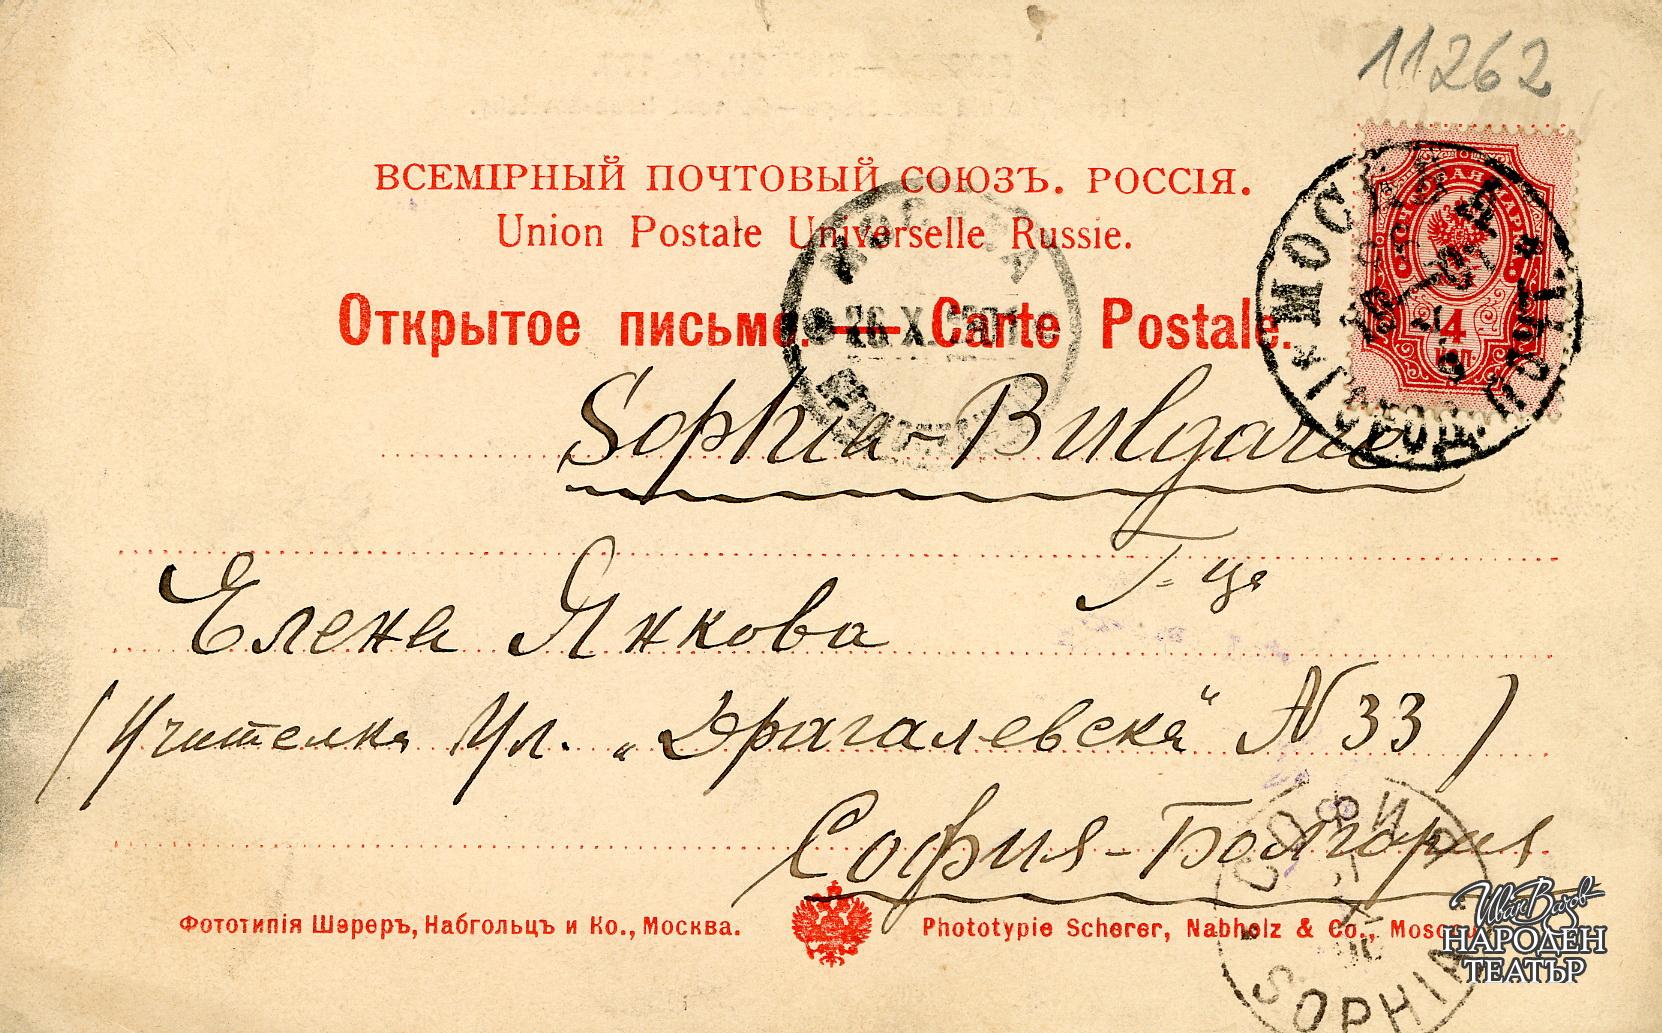 11262
ВСЕМІРНЫЙ ПОЧТОВЫЙ СОЮЗЪ. РОССІЯ.
Union Postale Universelle Russie.
Открытое письмо. — Carte Postale.
МОСКВА
26 X
МОСКВА
4
КОП.
Sophia - Bulgarie
Г-ца
Елена Янкова
(Учителка Ул. „Драгалевска“ N 33)
София - Болгория
Фототипія Шереръ, Набгольцъ и Ко., Москва.
Phototypie Scherer, Nabholz & Co., Moscou.
СОФИЯ
SOPHIA
Иван Вазов
НАРОДЕН
ТЕАТЪР